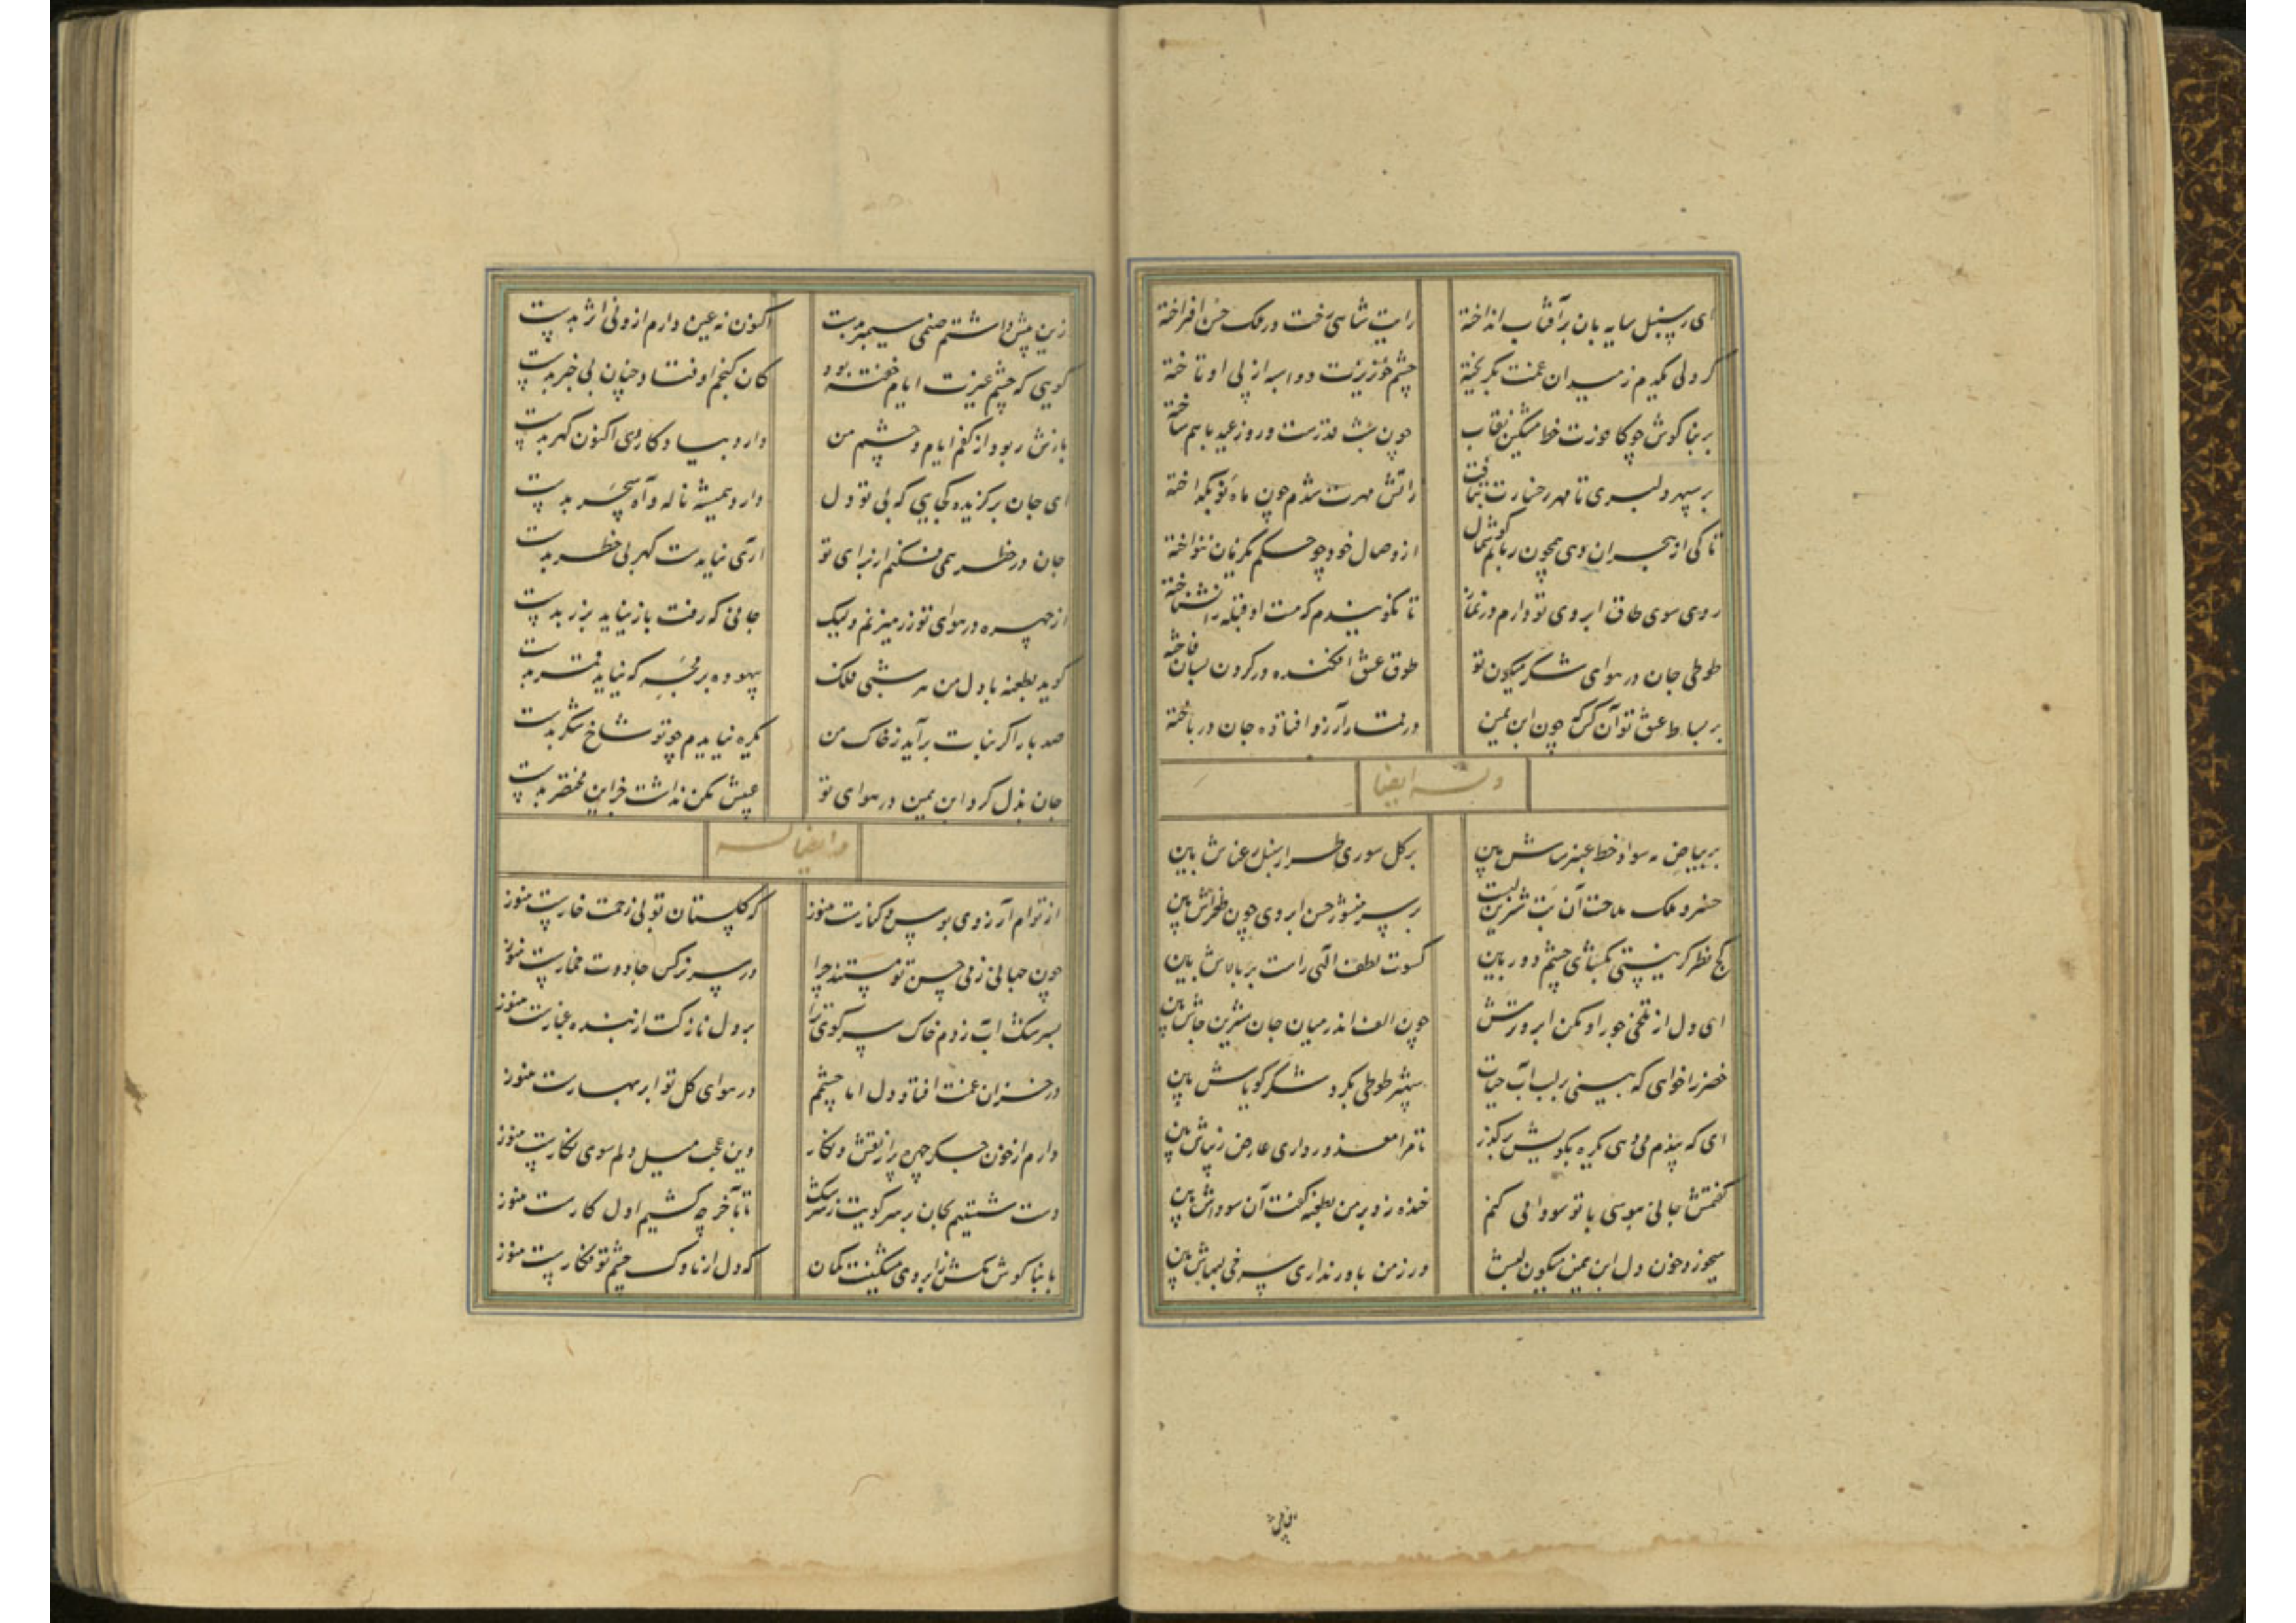 ای ز سنبل سایه بان بر آفتاب انداخته
رایت شاهی رخت در ملک حسن افراخته
گر دلی یکدم ز میدان غمت بگریخته
چشم خونریزت دو اسبه از پی او تاخته
بر بناگوش چو کافورت خط مشکین نقاب
چون شب قدرست و روز عید با هم ساخته
بر سپهر دلبری تا مهر رخسارت بتافت
زآتش مهرت شدم چون ماه نو بگداخته
تا کی از هجران دهی همچون ربابم گوشمال
از وصال خود چو چنگم یکزمان ننواخته
روی سوی طاق ابروی تو دارم در نماز
تا نگویندم که مست او قبله را نشناخته
طوطی جان در هوای شکر میگون تو
طوق عشق افکنده در گردن بسان فاخته
بر بساط عشق تو آن کس که چون ابن یمین
در قمار آرزو افتاده جان در باخته
وله ایضا
بر بیاض مه سواد خط عنبرساش بین
بر گل سوری طراز سنبل رعناش بین
خسرو ملک ملاحت آن بت شیرین لبست
بر سر منشور حسن ابروی چون طغراش بین
کج نظر گر نیستی بگشای چشم دوربین
کسوت لطف الهی راست بر بالاش بین
ای دل از تلخی جور او مکن ابرو ترش
چون الف اندر میان جان شیرین جاش بین
خضر را خواهی که بینی بر لب آب حیات
سبزه طوطی بگرد شکر گویاش بین
ای که پندم می دهی یکره بکویش برگذر
تا مرا معذور داری عارض زیباش بین
گفتمش جانی ببوسی با تو سودا می کنم
خنده زد بر من بطعنه گفت آن سوداش بین
میخورد خون دل ابن یمین میگون لبش
ور ز من باور نداری سرخی لبهاش بین
زین پیش داشتم صنمی سیمبر بدست
اکنون نه عین دارم ازو نی اثر بدست
گویی که چشم غیرت ایام خفته بود
کان گنجم اوفتاد چنان بی خبر بدست
بازش ربود از کفم ایام و چشم من
دارد بیادگار وی اکنون گهر بدست
ای جان برگزیده کجایی که بی تو دل
دارد همیشه ناله و آه سحر بدست
جان در خطر همی فکنم از برای تو
آری نیایدت گهر بی خطر بدست
از چهره در هوای تو زر میزنم ولیک
جانی که رفت باز نیاید بزر بدست
گوید بطعنه با دل من هر شبی فلک
بیهوده بر مجه که نیاید قمر بدست
صد بار اگر نبات برآید ز خاک من
یکره نیایدم چو تو شاخ شکر بدست
جان بذل کرد ابن یمین در هوای تو
عیبش مکن نداشت جز این مختصر بدست
و ایضا له
از توام آرزوی بوس و کنارست هنوز
گر گلستان تو بی زحمت خارست هنوز
چون جهانی ز می حسن تو مستند چرا
در سر نرگس جادوت خمارست هنوز
بسرشک آب زدم خاک سر کوی ترا
بر دل نازکت از بنده غبارست هنوز
در خزان غمت افتاد دل اما چشمم
در هوای گل تو ابر بهارست هنوز
دارم از خون جگر چهره پر از نقش و نگار
وین عجب میل دلم سوی نگارست هنوز
دست شستیم بجان بر سر کویت ز سرشک
تا بآخر چه کشیم اول کارست هنوز
با بناگوش مکش ز ابروی مشکینت کمان
که دل از ناوک چشم تو فکارست هنوز